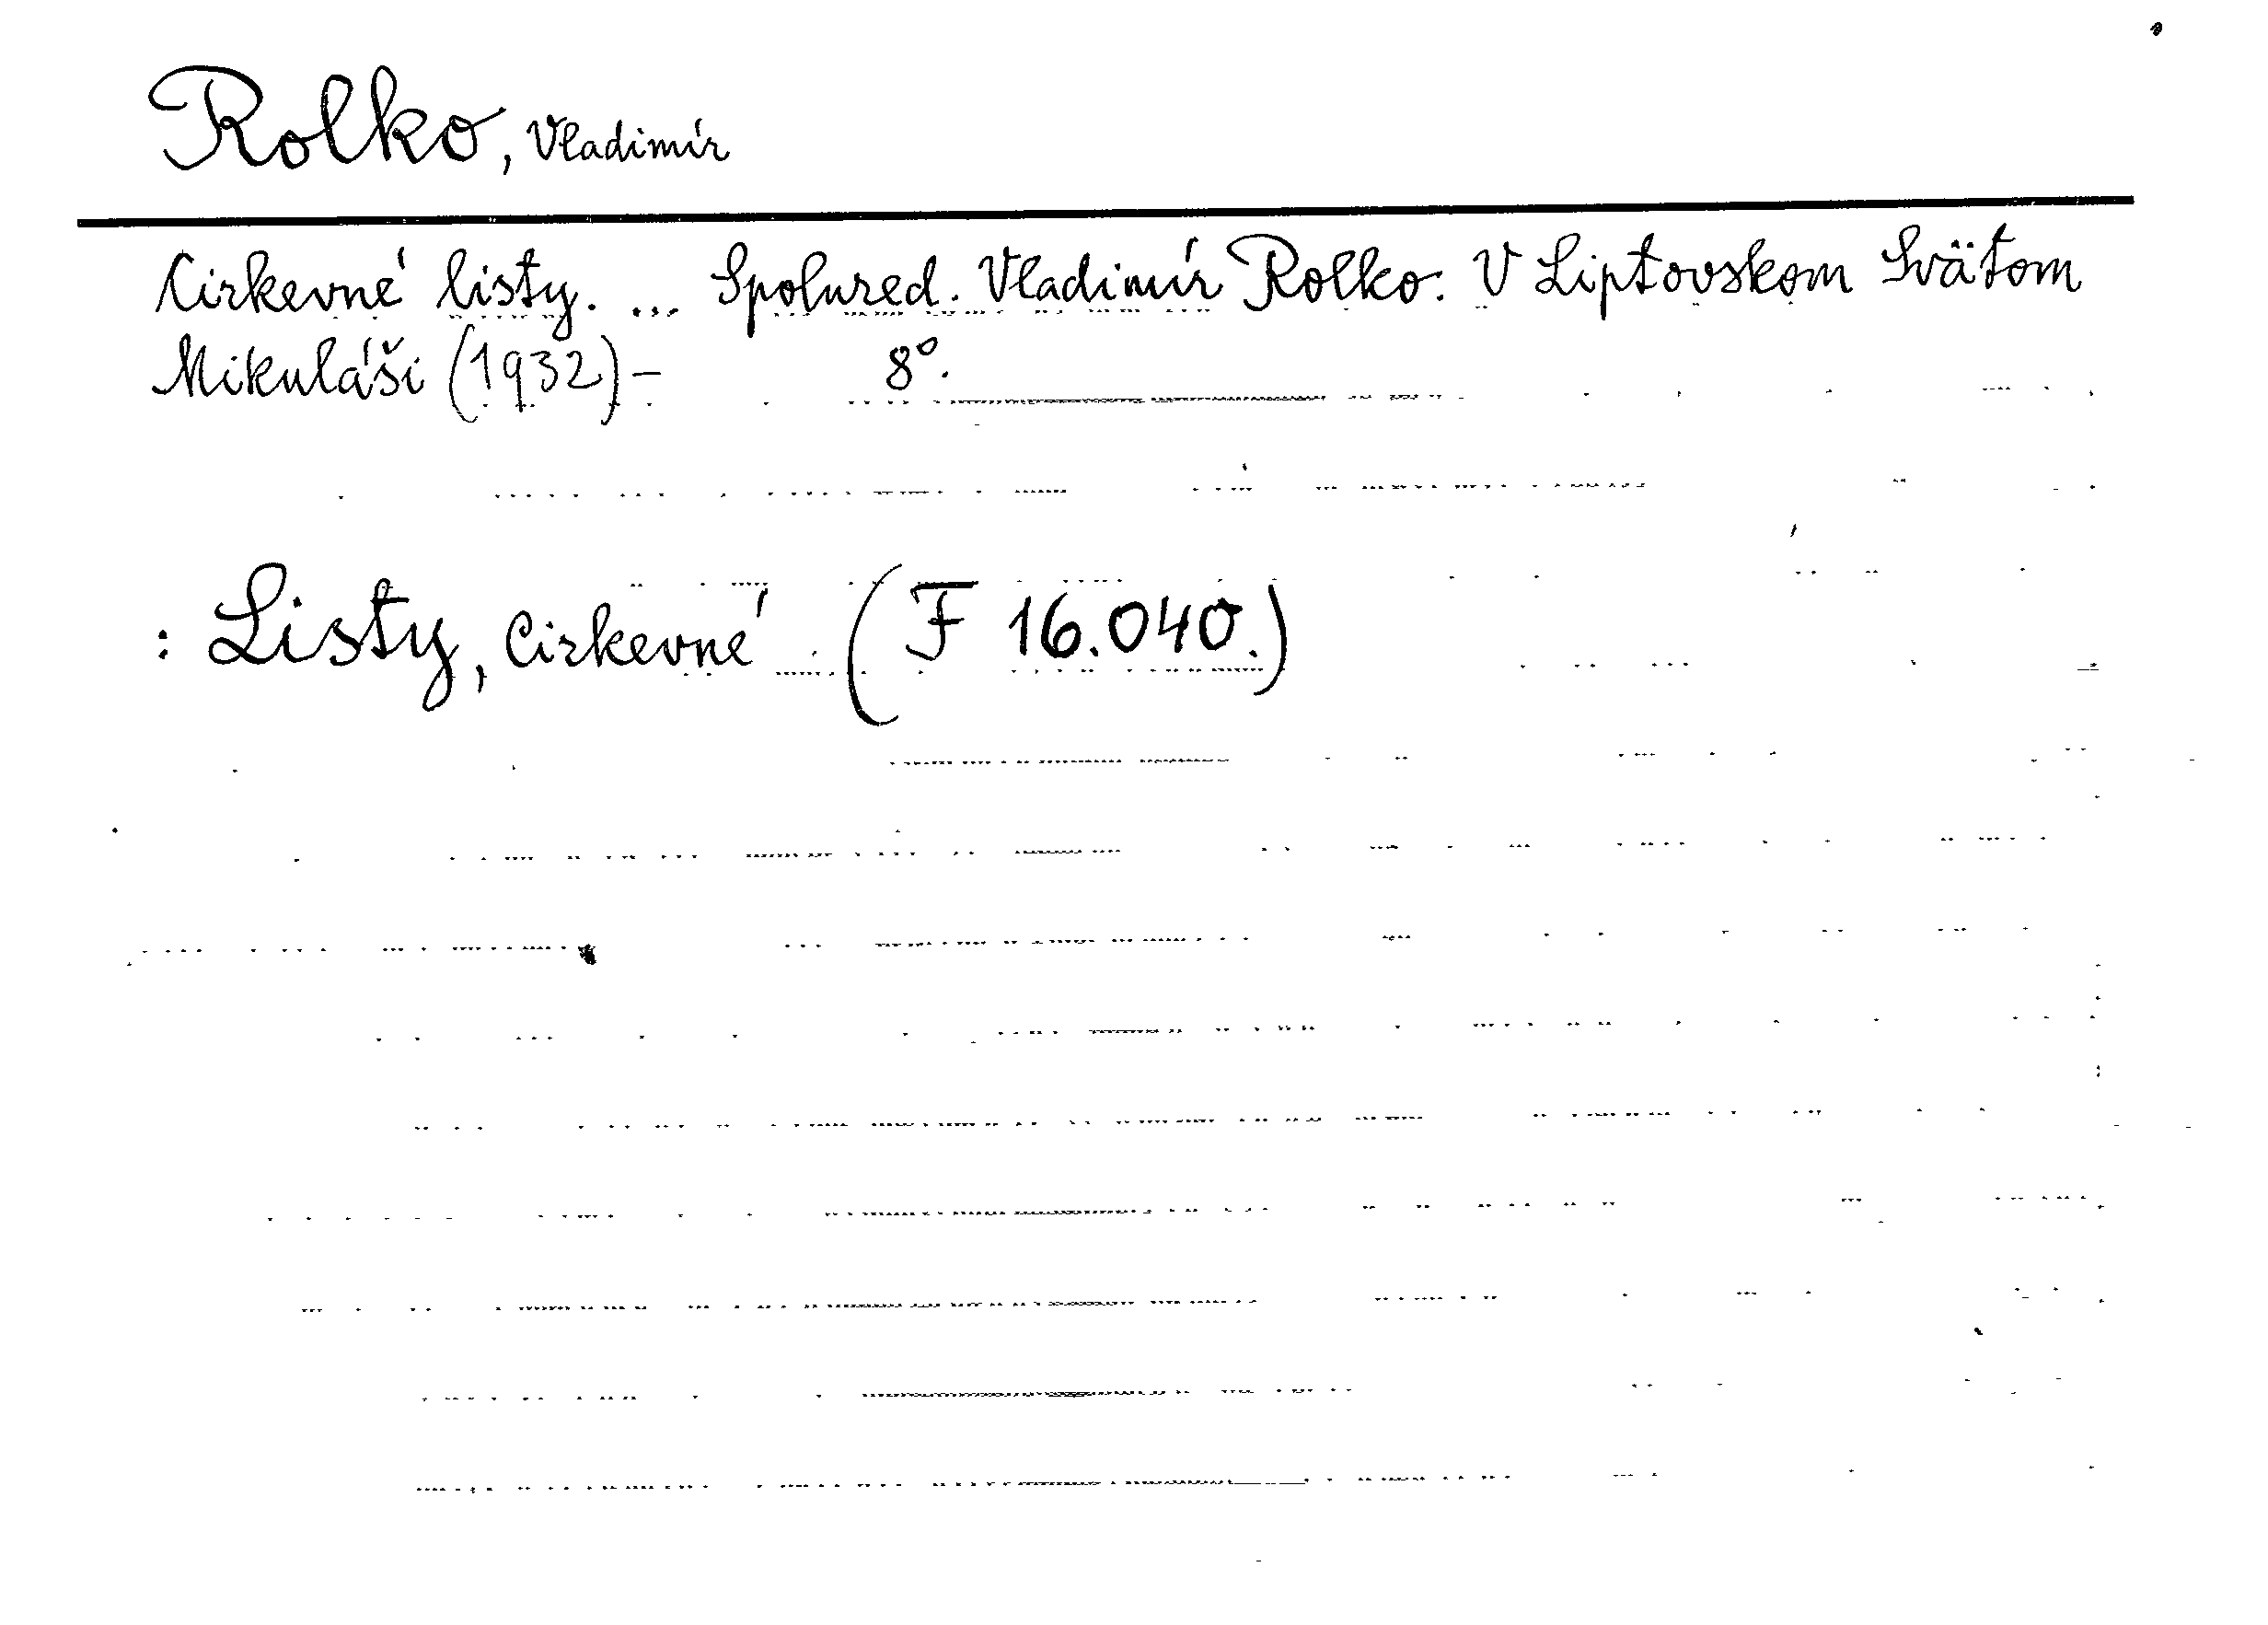 Rolko, Vladimír
Cirkevné listy. ... Spolured. Vladimír Rolko. V Liptovskom Svätom
Mikuláši (1932)- 8°.
: Listy, Cirkevné (F 16.040.)